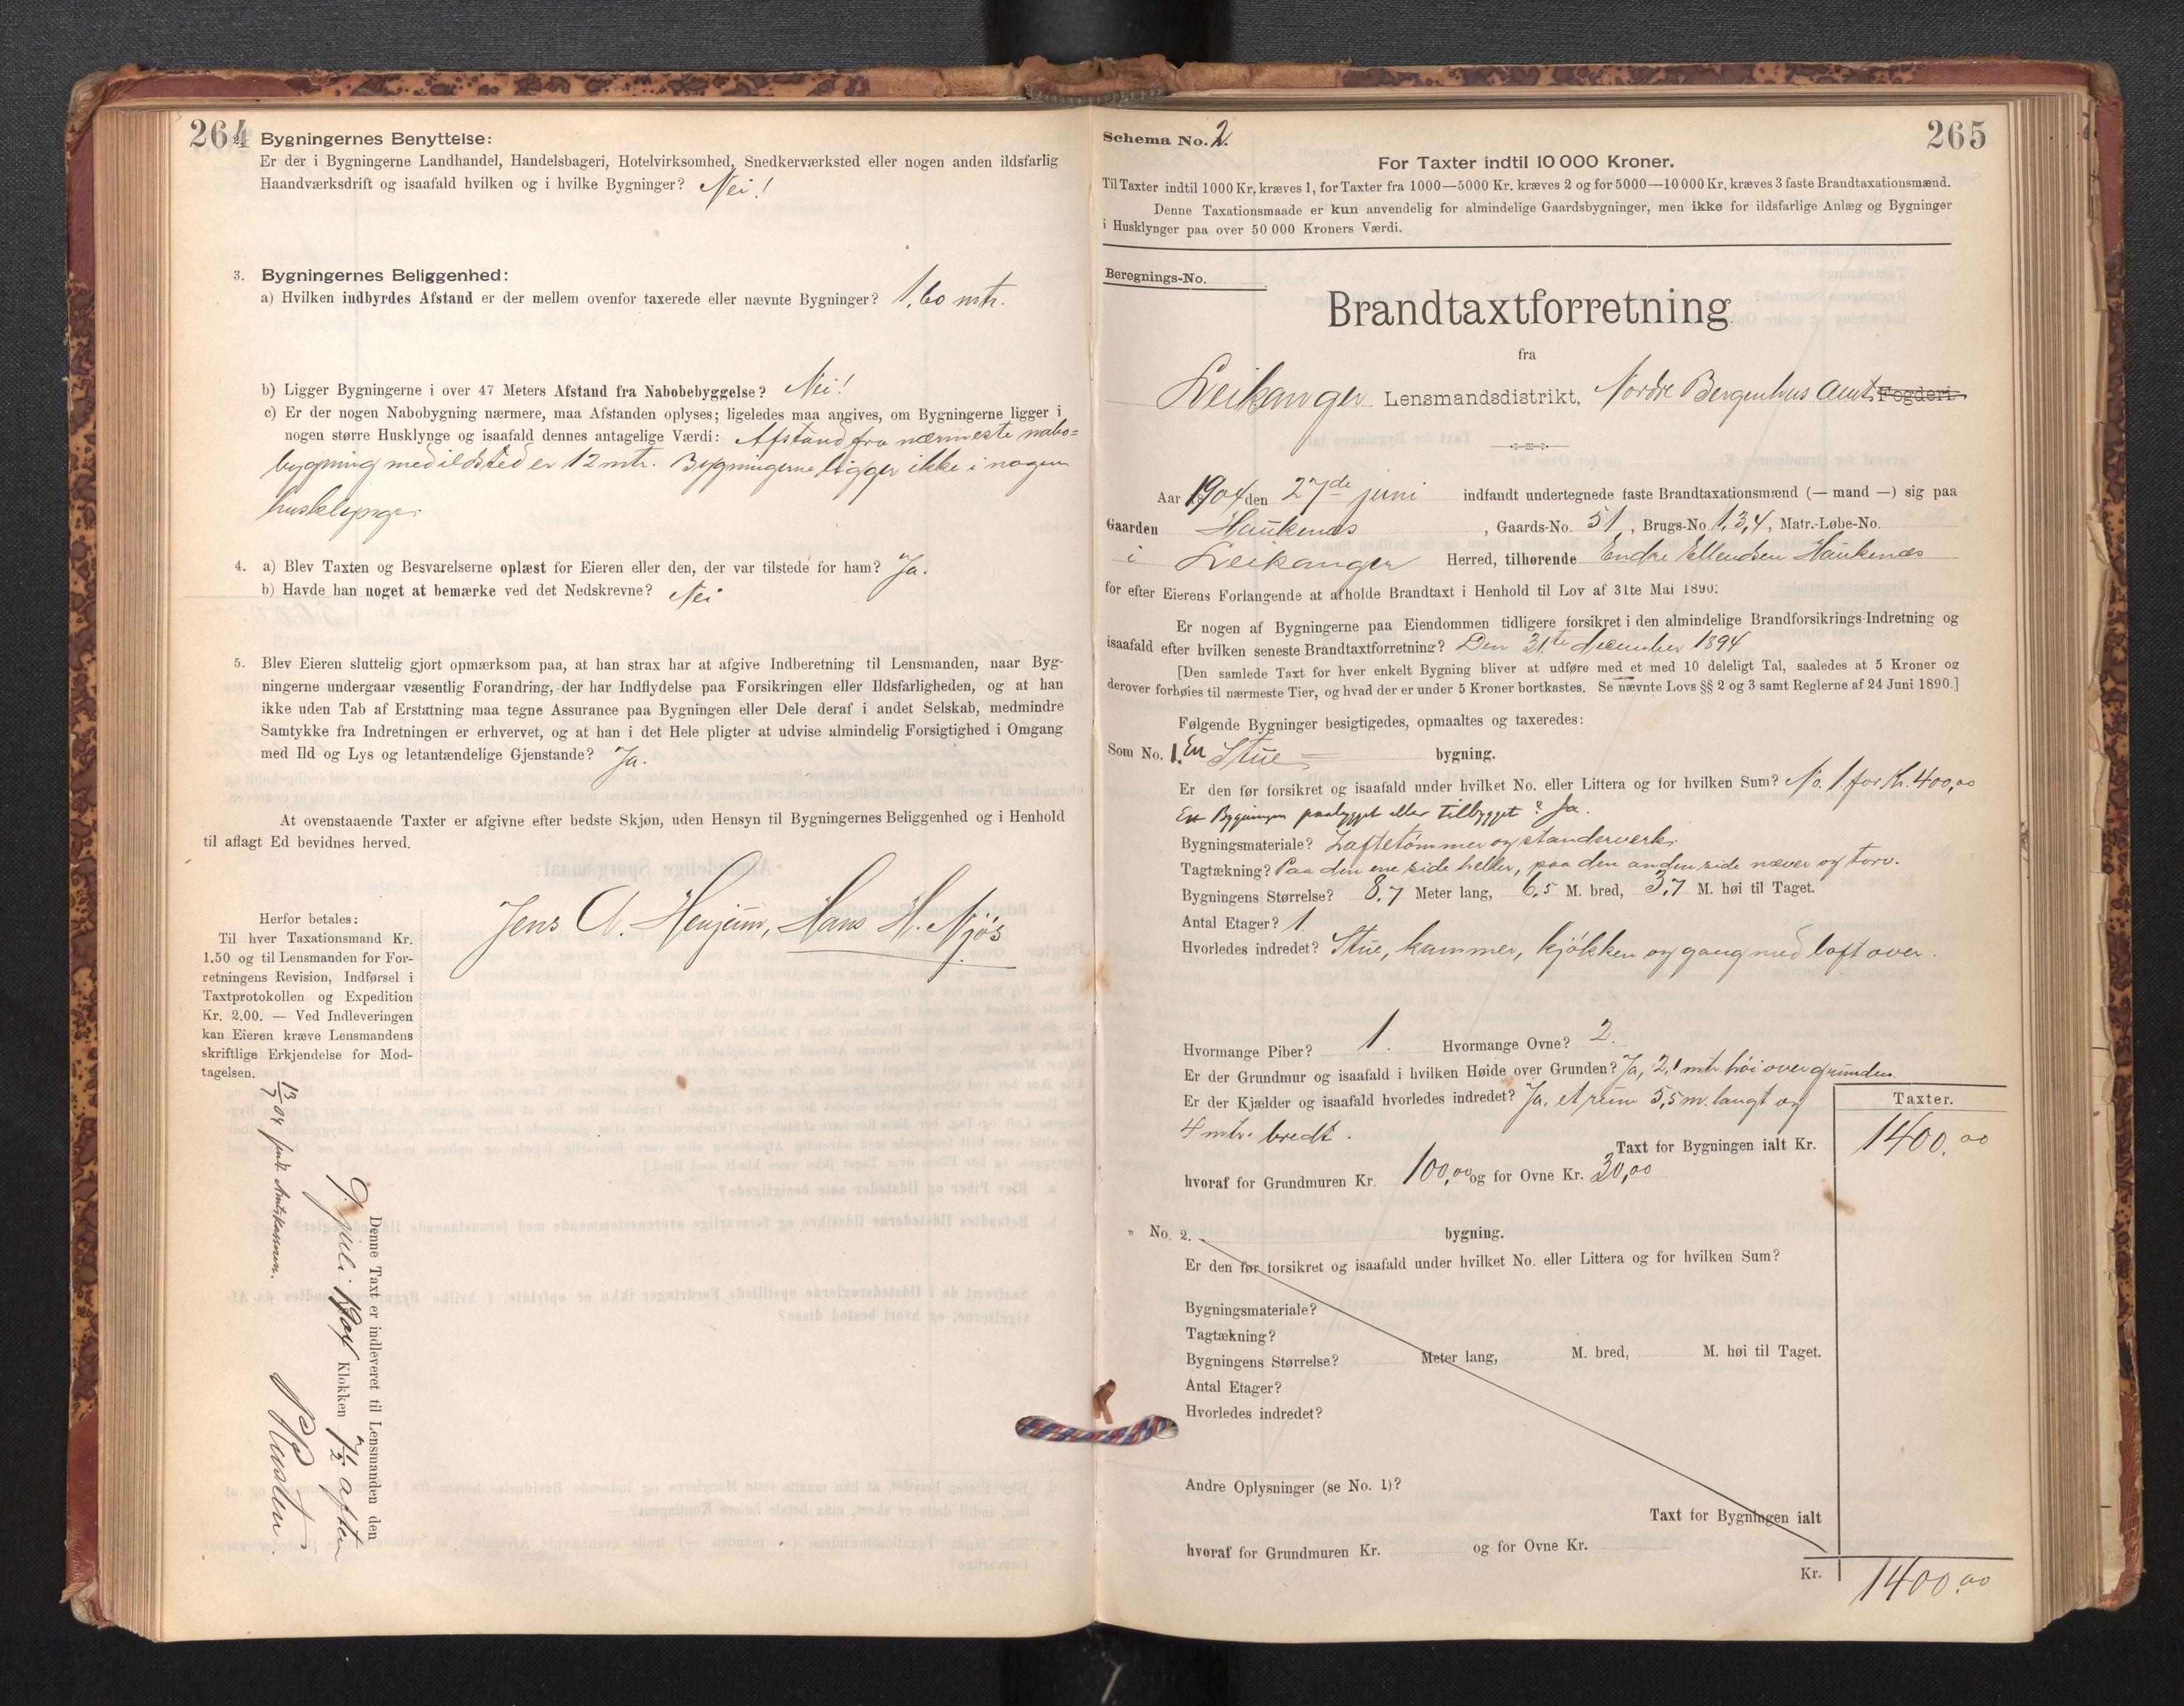 264
Bygningernes Benyttelse:
Er der i Bygningerne Landhandel, Handelsbageri, Hotelvirksomhed, Snedkerværksted eller nogen anden ildsfarlig
Haandværksdrift og isaafald hvilken og i hvilke Bygninger? Nei!
3. Bygningernes Beliggenhed:
a) Hvilken indbyrdes Afstand er der mellem ovenfor taxerede eller nævnte Bygninger? 1,60 mtr.
b) Ligger Bygningerne i over 47 Meters Afstand fra Nabobebyggelse? Nei!
c) Er der nogen Nabobygning nærmere, maa Afstanden oplyses; ligeledes maa angives, om Bygningerne ligger i
nogen større Husklynge og isaafald dennes antagelige Værdi: Afstand fra nærmeste nabo=
bygning med ildsted er 12 mtr. Bygningerne ligger ikke i nogen
husklynge.
4. a) Blev Taxten og Besvarelserne oplæst for Eieren eller den, der var tilstede for ham? Ja.
b) Havde han noget at bemærke ved det Nedskrevne? Nei
5. Blev Eieren sluttelig gjort opmærksom paa, at han strax har at afgive Indberetning til Lensmanden, naar Byg-
ningerne undergaar væsentlig Forandring, der har Indflydelse paa Forsikringen eller Ildsfarligheden, og at han
ikke uden Tab af Erstatning maa tegne Assurance paa Bygningen eller Dele deraf i andet Selskab, medmindre
Samtykke fra Indretningen er erhvervet, og at han i det Hele pligter at udvise almindelig Forsigtighed i Omgang
med Ild og Lys og letantændelige Gjenstande? Ja.
At ovenstaaende Taxter er afgivne efter bedste Skjøn, uden Hensyn til Bygningernes Beliggenhed og i Henhold
til aflagt Ed bevidnes herved.
Jens A. Henjum, Hans H. Njøs
Herfor betales:
Til hver Taxationsmand Kr.
1.50 og til Lensmanden for For-
retningens Revision, Indførsel i
Taxtprotokollen og Expedition
Kr. 2.00. — Ved Indleveringen
kan Eieren kræve Lensmandens
skriftlige Erkjendelse for Mod-
tagelsen.
Denne Taxt er indleveret til Lensmanden den
9. juli 1904 Klokken 7½ aften
13/7 04 sendt Amtskassereren.
265
Schema No. 2.
For Taxter indtil 10 000 Kroner.
Til Taxter indtil 1000 Kr. kræves 1, for Taxter fra 1000—5000 Kr. kræves 2 og for 5000—10 000 Kr. kræves 3 faste Brandtaxationsmænd.
Denne Taxationsmaade er kun anvendelig for almindelige Gaardsbygninger, men ikke for ildsfarlige Anlæg og Bygninger
i Husklynger paa over 50 000 Kroners Værdi.
Beregnings-No.
Brandtaxtforretning
fra
Leikanger Lensmandsdistrikt, Nordre Bergenhus Amt Fogderi.
Aar 1904 den 27de juni indfandt undertegnede faste Brandtaxationsmænd (— mand —) sig paa
Gaarden Haukenæs, Gaards-No. 51, Brugs-No. 1,3,4, Matr.-Løbe-No.
i Leikanger Herred, tilhørende Endre Ellendsen Haukenæs
for efter Eierens Forlangende at afholde Brandtaxt i Henhold til Lov af 31te Mai 1890.
Er nogen af Bygningerne paa Eiendommen tidligere forsikret i den almindelige Brandforsikrings-Indretning og
isaafald efter hvilken seneste Brandtaxtforretning? Den 31.te december 1894
[Den samlede Taxt for hver enkelt Bygning bliver at udføre med et med 10 deleligt Tal, saaledes at 5 Kroner og
derover forhøies til nærmeste Tier, og hvad der er under 5 Kroner bortkastes. Se nævnte Lovs §§ 2 og 3 samt Reglerne af 24 Juni 1890.]
Følgende Bygninger besigtigedes, opmaaltes og taxeredes:
Som No. 1. En Stue bygning.
Er den før forsikret og isaafald under hvilket No. eller Littera og for hvilken Sum? No. 1 for Kr. 400,00
Er Bygningen paabygget eller tilbygget? Ja.
Bygningsmateriale? Laftetømmer og standerverk.
Tagtækning? Paa den ene side heller, paa den anden side næver og torv.
Bygningens Størrelse? 8,7 Meter lang, 6,5 M. bred, 3,7 M. høi til Taget.
Antal Etager? 1
Hvorledes indredet? Stue, kammer, kjøkken og gang med loft over.
Hvormange Piber? 1. Hvormange Ovne? 2.
Er der Grundmur og isaafald i hvilken Høide over Grunden? Ja, 2,1 mtr. høi over grunden.
Er der Kjælder og isaafald hvorledes indredet? Ja, et rum 5,5 m. langt og
4 mtr. bredt.
Taxter.
Taxt for Bygningen ialt Kr. 1400,00
hvoraf for Grundmuren Kr. 100,00 og for Ovne Kr. 30,00
" No. 2. bygning.
Er den før forsikret og isaafald under hvilket No. eller Littera og for hvilken Sum?
Bygningsmateriale?
Tagtækning?
Bygningens Størrelse? Meter lang, M. bred, M. høi til Taget.
Antal Etager?
Hvorledes indredet?
Andre Oplysninger (se No. 1)?
Taxt for Bygningen ialt
hvoraf for Grundmuren Kr. og for Ovne Kr.
Kr. 1400,00